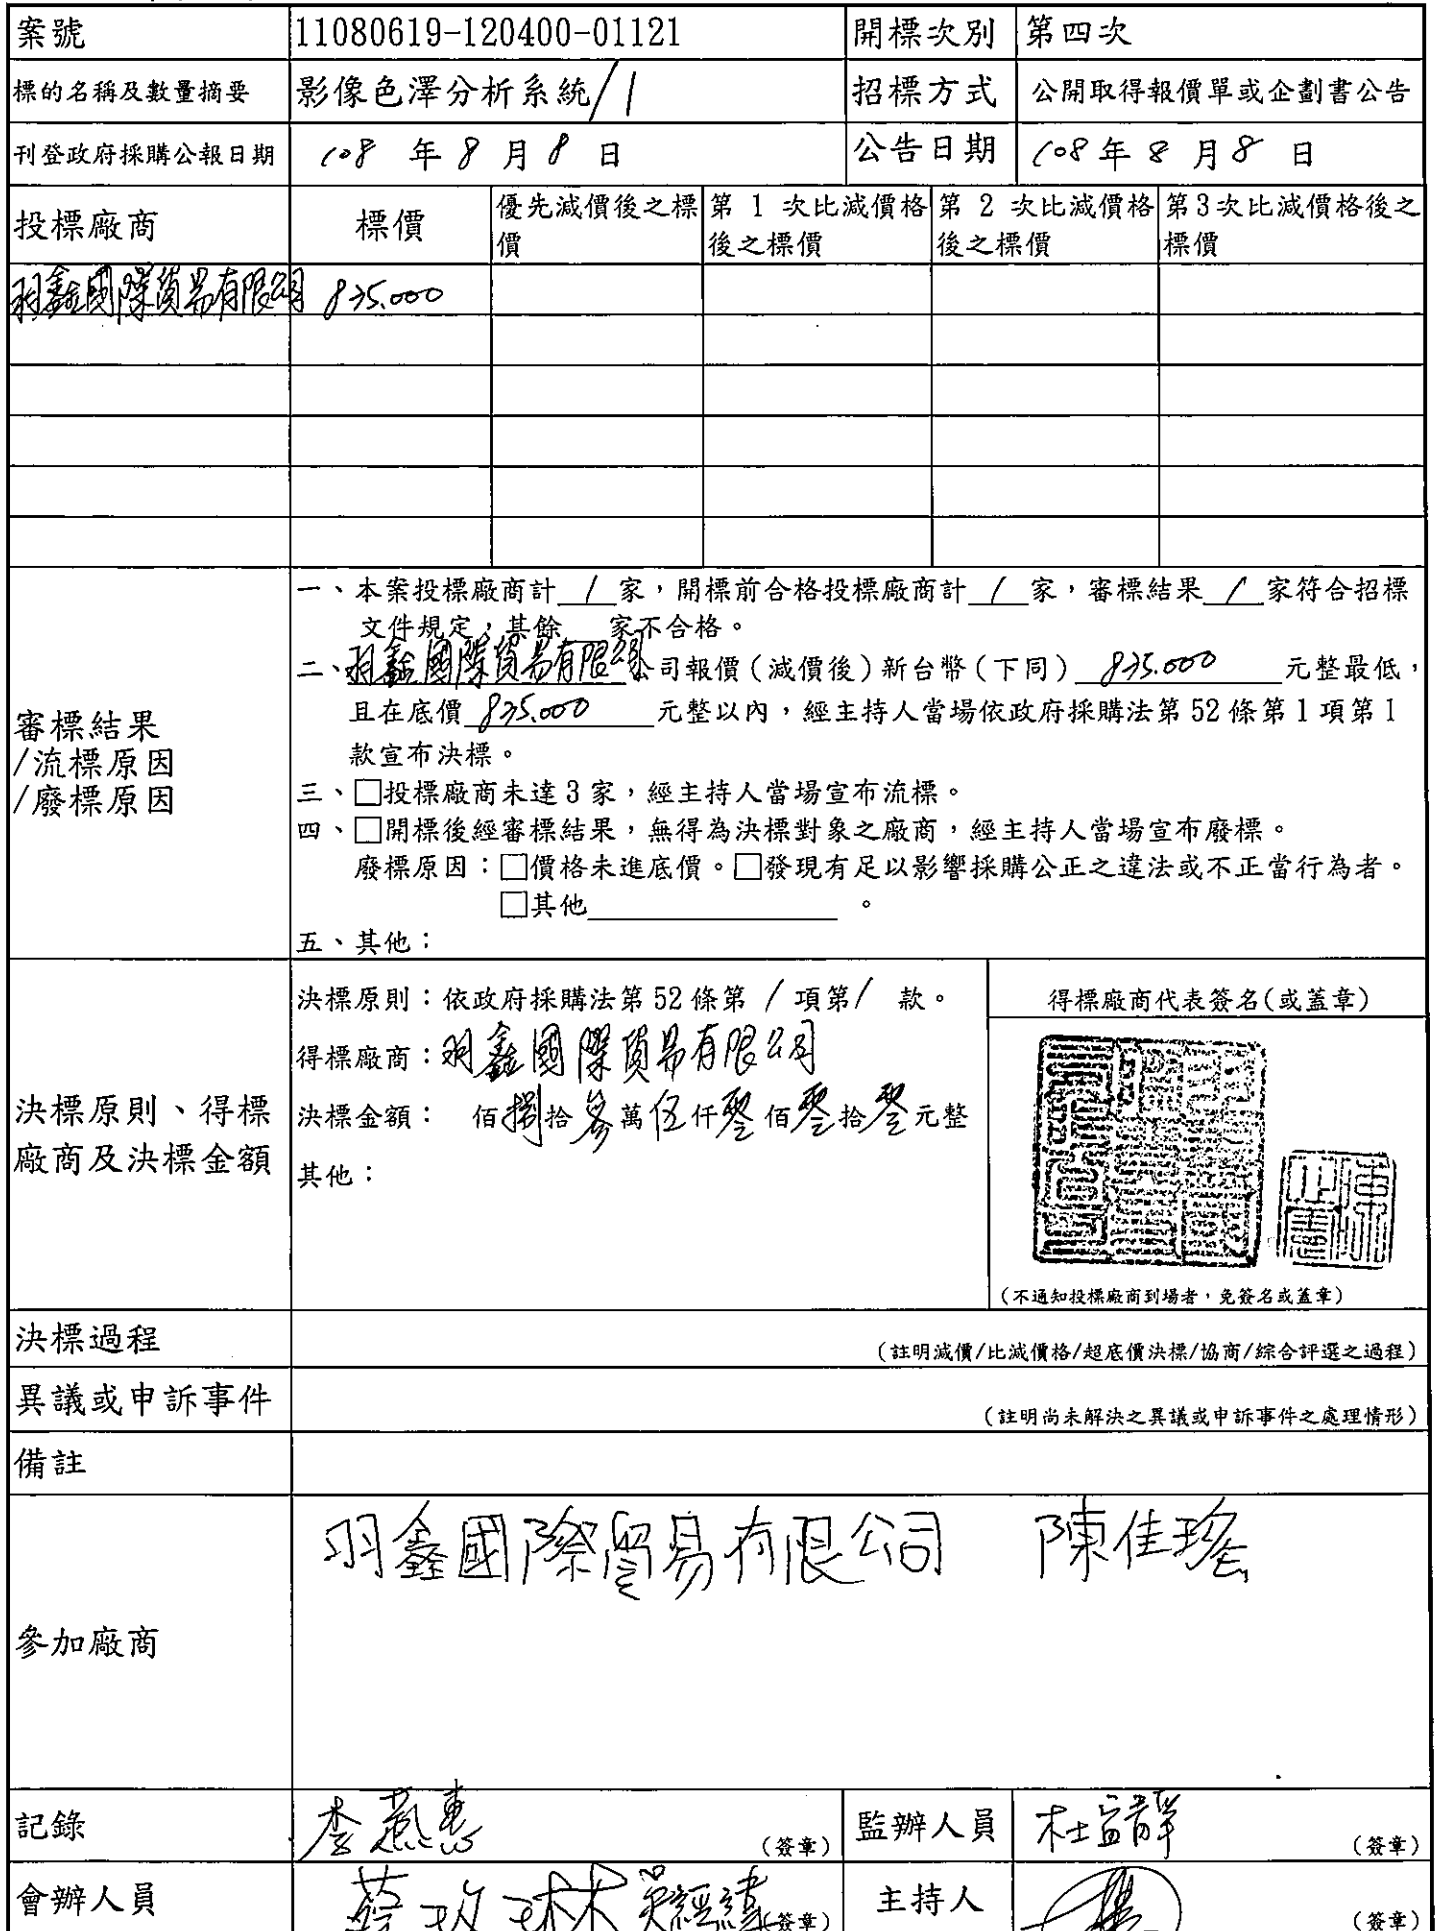 案號 11080619-120400-01121 開標次別 第四次
標的名稱及數量摘要 影像色澤分析系統/1 招標方式 公開取得報價單或企劃書公告
刊登政府採購公報日期 108 年 8 月 8 日 公告日期 108 年 8 月 8 日
投標廠商 標價 優先減價後之標價 第 1 次比減價格後之標價 第 2 次比減價格後之標價 第3次比減價格後之標價
羽鑫國際貿易有限公司 835.000
審標結果
/流標原因
/廢標原因
一、本案投標廠商計 1 家，開標前合格投標廠商計 1 家，審標結果 1 家符合招標
文件規定，其餘 家不合格。
二、羽鑫國際貿易有限公司報價(減價後)新台幣(下同) 835.000 元整最低，
且在底價 835.000 元整以內，經主持人當場依政府採購法第 52 條第 1 項第 1
款宣布決標。
三、□投標廠商未達 3 家，經主持人當場宣布流標。
四、□開標後經審標結果，無得為決標對象之廠商，經主持人當場宣布廢標。
廢標原因：□價格未進底價。□發現有足以影響採購公正之違法或不正當行為者。
□其他 。
五、其他：
決標原則、得標
廠商及決標金額
決標原則：依政府採購法第 52 條第 1 項第 1 款。
得標廠商：羽鑫國際貿易有限公司
決標金額： 佰捌拾參萬伍仟零佰零拾零元整
其他：
得標廠商代表簽名(或蓋章)
(不通知投標廠商到場者，免簽名或蓋章)
決標過程 (註明減價/比減價格/超底價決標/協商/綜合評選之過程)
異議或申訴事件 (註明尚未解決之異議或申訴事件之處理情形)
備註
參加廠商 羽鑫國際貿易有限公司 陳佳瑤
記錄 (簽章) 監辦人員 (簽章)
會辦人員 (簽章) 主持人 (簽章)